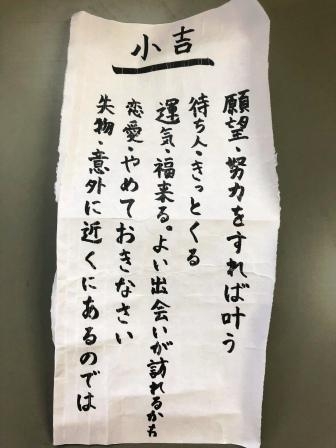 小吉
願望・努力をすれば叶う
待ち人・きっとくる
運気・福来る。よい出会いが訪れるかも
恋愛・やめておきなさい
失物・意外に近くにあるのでは